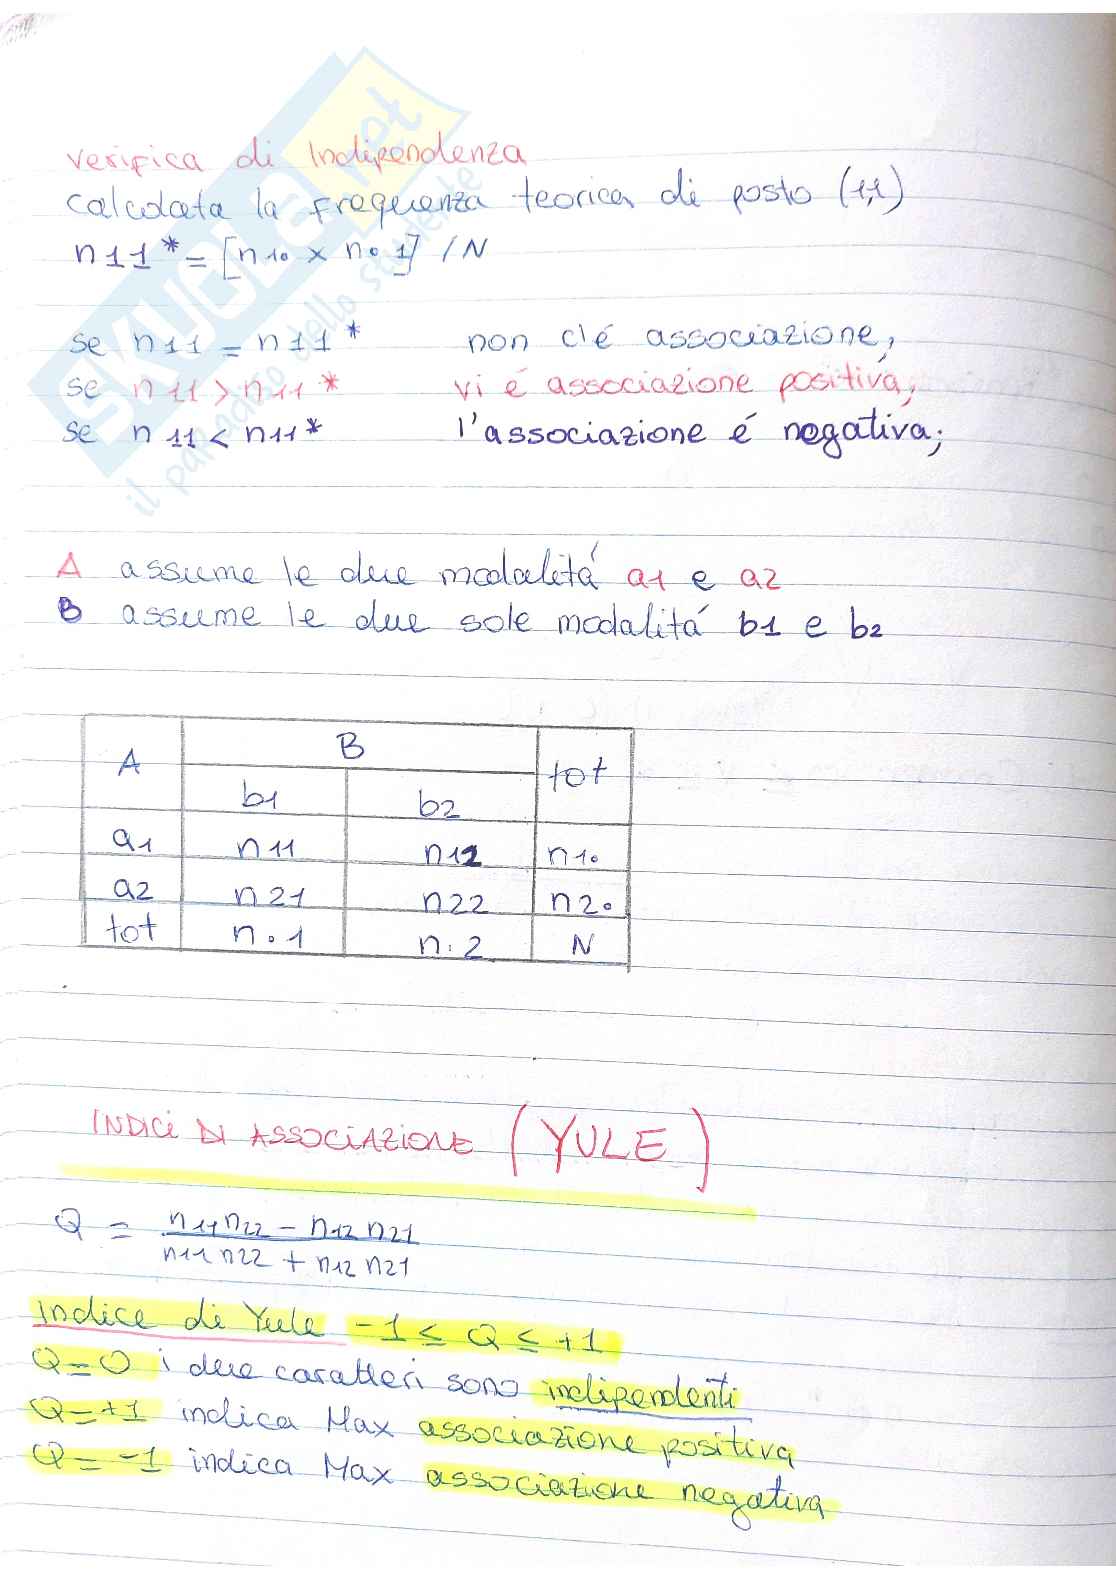 SKUOLA.net
il paradiso dello studente
Verifica di Indipendenza
calcolata la frequenza teorica di posto (1,1)
n11* = [n10 x n•1] / N
se n11 = n11* non c'é associazione,
se n11 > n11* vi é associazione positiva;
se n11 < n11* l'associazione é negativa;
A assume le due modalitá a1 e a2
B assume le due sole modalitá b1 e b2
A B tot
b1 b2
a1 n11 n12 n1•
a2 n21 n22 n2•
tot n•1 n.2 N
INDICI DI ASSOCIAZIONE (YULE)
Q = n11 n22 - n12 n21
n11 n22 + n12 n21
Indice di Yule -1 ≤ Q ≤ +1
Q=0 i due caratteri sono indipendenti
Q=+1 indica Max associazione positiva
Q=-1 indica Max associazione negativa